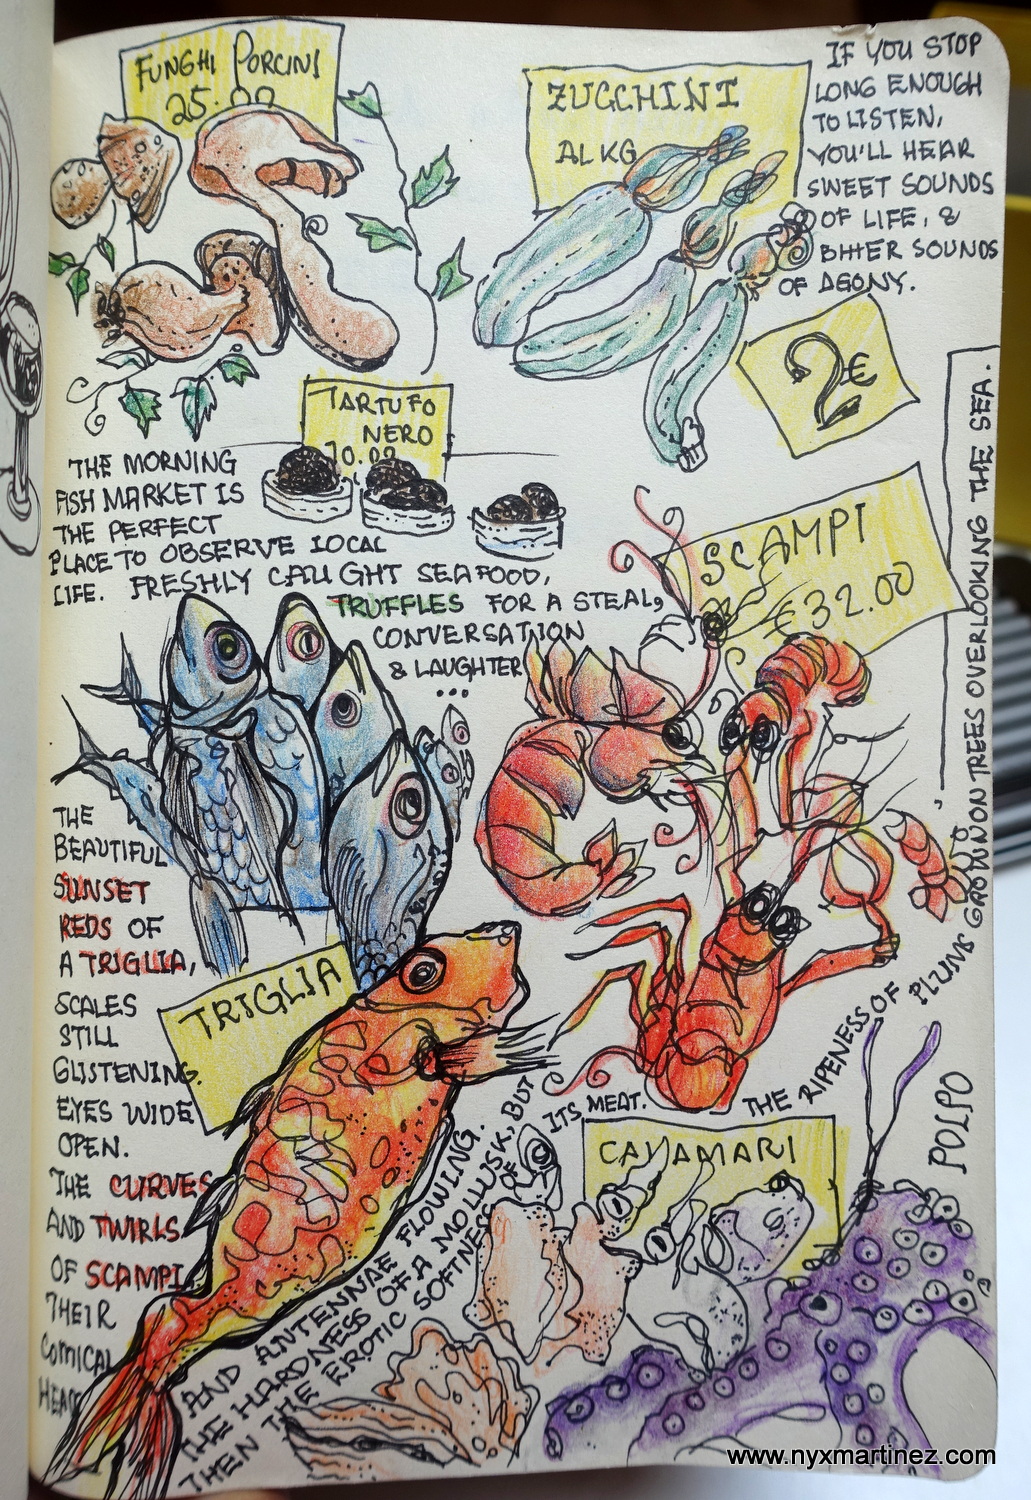 FUNGHI PORCINI
25.00
ZUCCHINI
AL KG
2€
IF YOU STOP
LONG ENOUGH
TO LISTEN,
YOU'LL HEAR
SWEET SOUNDS
OF LIFE, &
BITTER SOUNDS
OF AGONY.
TARTUFO
NERO
10.00
THE MORNING
FISH MARKET IS
THE PERFECT
PLACE TO OBSERVE LOCAL
LIFE. FRESHLY CAUGHT SEAFOOD,
TRUFFLES FOR A STEAL,
CONVERSATION
& LAUGHTER
...
SCAMPI
€32.00
THE
BEAUTIFUL
SUNSET
REDS OF
A TRIGLIA,
SCALES
STILL
GLISTENING.
EYES WIDE
OPEN.
THE CURVES
AND TWIRLS
OF SCAMPI,
THEIR
COMICAL
HEADS
TRIGLIA
AND ANTENNAE FLOWING.
THE HARDNESS OF A MOLLUSK, BUT
THEN THE EROTIC SOFTNESS OF
ITS MEAT.
THE RIPENESS OF PLUMS
GROWN ON TREES OVERLOOKING THE SEA.
CALAMARI
POLPO
www.nyxmartinez.com